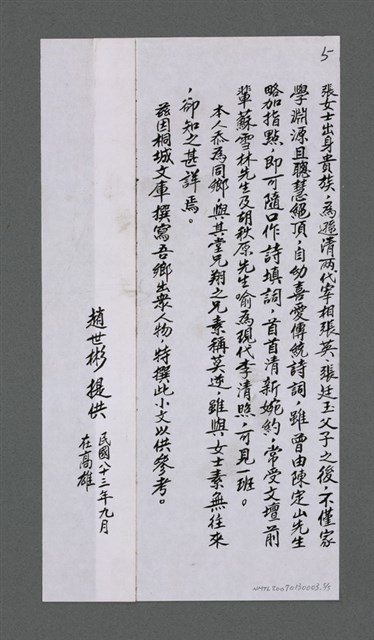 5
張女士出身貴族，為遜清兩代宰相張英、張廷玉父子之後，不僅家
學淵源且聰慧絕頂，自幼喜愛傳統詩詞，雖曾由陳定山先生
略加指點，即可隨口作詩填詞，首首清新婉約，常受文壇前
輩蘇雪林先生及胡秋原先生喻為現代李清照，可見一班。
本人忝為同鄉，與其堂兄翔之兄素稱莫逆，雖與女士素無往來
，卻知之甚詳焉。
茲因桐城文庫撰寫吾鄉出眾人物，特撰此小文以供參考。
趙世彬提供
民國八十三年九月
在高雄